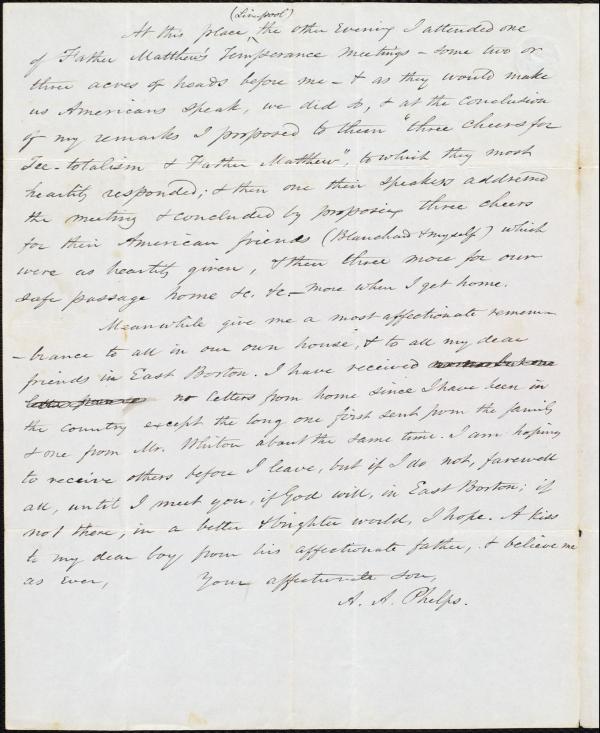 (Liverpool)
At this place, the other evening I attended one
of Father Matthew's Temperance meetings - some two or
three acres of heads before me - & as they would make
us Americans speak, we did so, & at the conclusion
of my remarks I proposed to them "three cheers for
Tee-totalism & Father Matthew", to which they most
heartily responded; & then one their speakers addressed
the meeting & concluded by proposing three cheers
for their American friends (Blanchard & myself) which
were as heartily given, & then three more for our
safe passage home &c. &c. - more when I get home.
Meanwhile give me a most affectionate remem-
-brance to all in our own house, & to all my dear
friends in East Boston. I have received
no letters from home since I have been in
the country except the long one first sent from the family
& one from Mr. Whiton about the same time. I am hoping
to receive others before I leave, but if I do not, farewell
all, until I meet you, if God will, in East Boston; if
not there, in a better & brighter world, I hope. A kiss
to my dear boy from his affectionate father, & believe me
as ever, Your affectionate son,
A. A. Phelps.